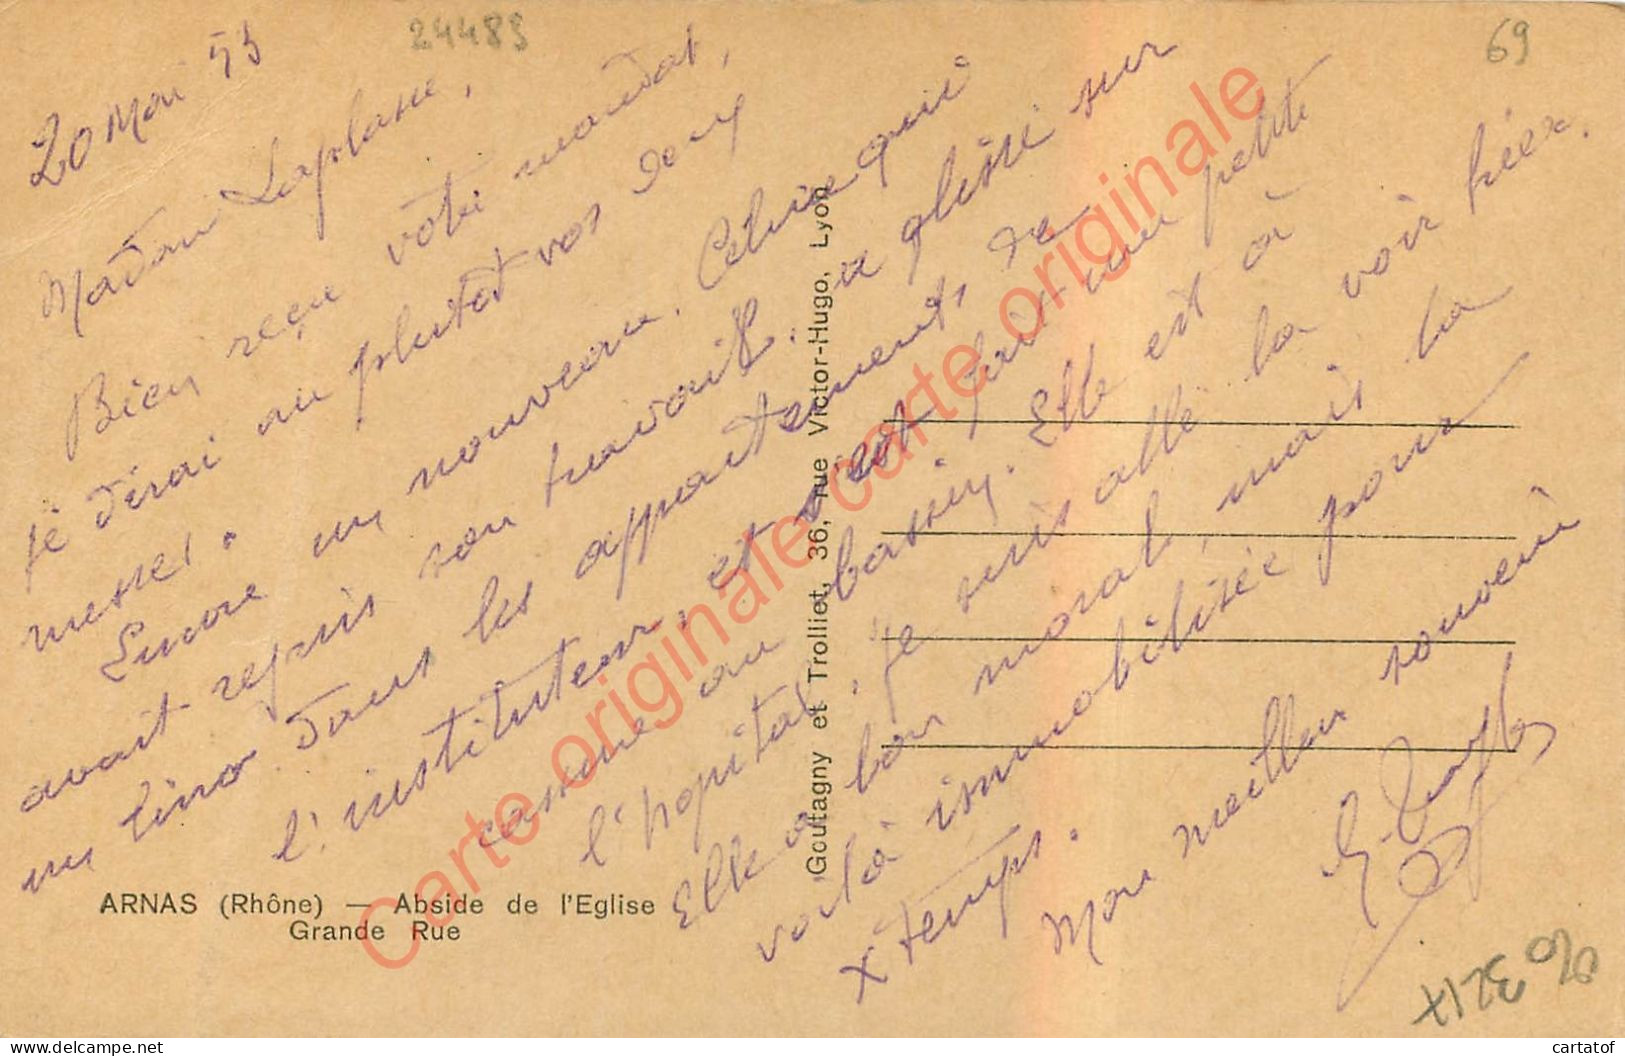 24483
69
20 Mai 53
Madame Laplane,
Bien reçu votre mandat,
je dirai au plutot vos deux
messes.
Encore un nouveau. Celine qui
avait repris son travail, a glissé sur
un lino dans les appartements de
l'instituteur, et s'est fait une petite
cassure au bassin. Elle est à
l'hopital, je suis allé la voir hier.
Elle a bon moral, mais la
voilà immobilisée pour
x temps.
Mon meilleur souvenir
ARNAS (Rhône) — Abside de l'Eglise
Grande Rue
Goutagny et Trolliet, 36, rue Victor-Hugo, Lyon
Carte originale carte originale
cartatof